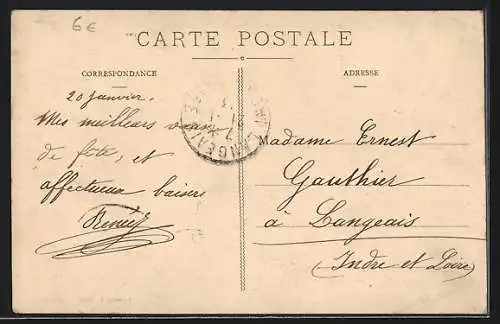 6€
CARTE POSTALE
CORRESPONDANCE
ADRESSE
20 Janvier.
Mes meilleurs vœux
de fête, et
affectueux baisers
Renée
LANGEAIS
Madame Ernest
Gauthier
à Langeais
(Indre et Loire)